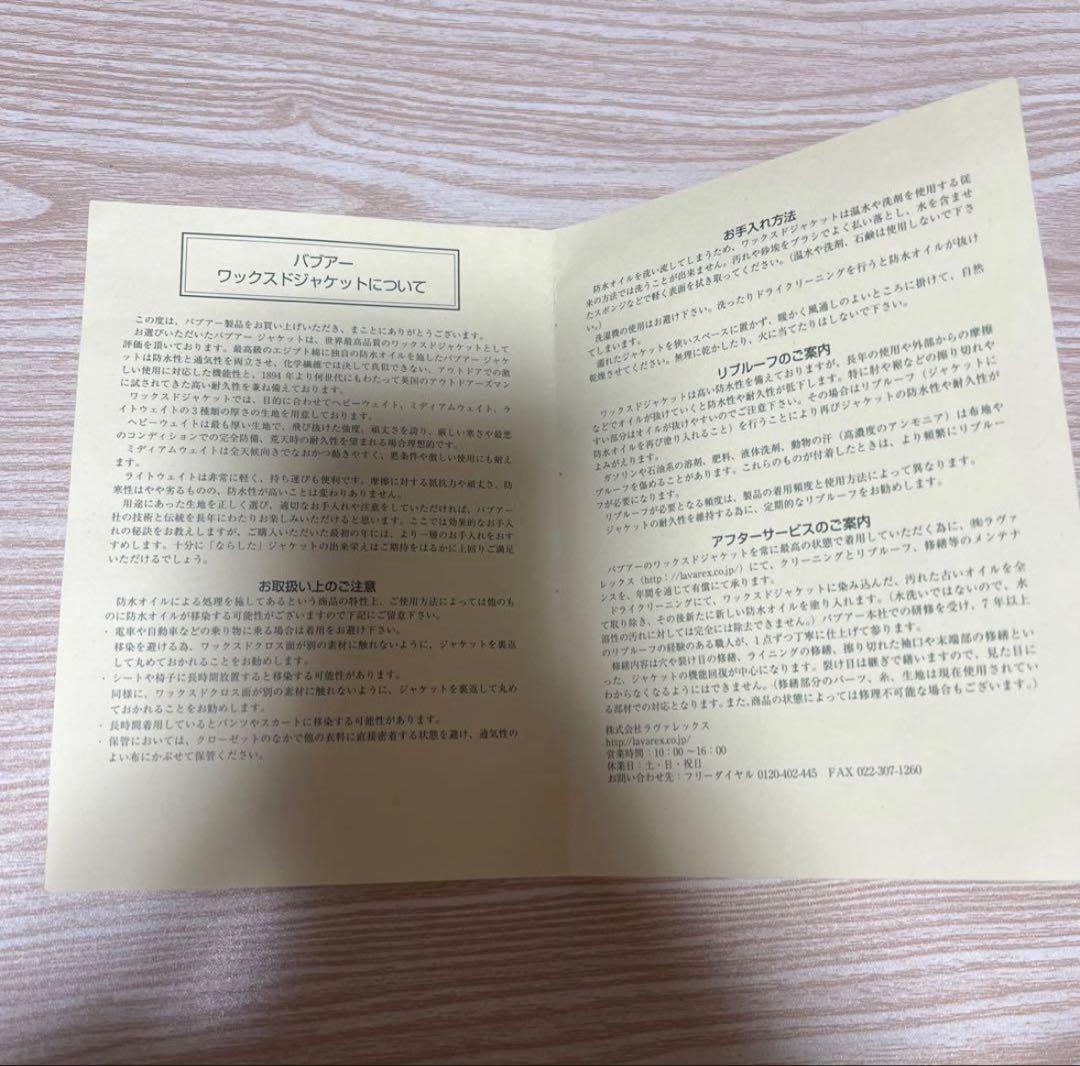 バブアー
ワックスドジャケットについて
この度は、バブアー製品をお買い上げいただき、まことにありがとうございます。
お選びいただいたバブアー ジャケットは、世界最高品質のワックスドジャケットとして
評価を頂いております。最高級のエジプト綿に独自の防水オイルを施したバブアー ジャケ
ットは防水性と通気性を両立させ、化学繊維では決して真似できない、アウトドアでの激
しい使用に対応した機能性と、1894 年より何世代にもわたって英国のアウトドアーズマン
に試されてきた高い耐久性を兼ね備えております。
ワックスドジャケットでは、目的に合わせてヘビーウェイト、ミディアムウェイト、ラ
イトウェイトの3種類の厚さの生地を用意しております。
ヘビーウェイトは最も厚い生地で、飛び抜けた強度、頑丈さを誇り、厳しい寒さや最悪
のコンディションでの完全防備、荒天時の耐久性を望まれる場合理想的です。
ミディアムウェイトは全天候向きでなおかつ動きやすく、悪条件や激しい使用にも耐え
ます。
ライトウェイトは非常に軽く、持ち運びも便利です。摩擦に対する抵抗力や頑丈さ、防
寒性はやや劣るものの、防水性が高いことは変わりありません。
用途にあった生地を正しく選び、適切なお手入れや注意をしていただければ、バブアー
社の技術と伝統を長年にわたりお楽しみいただけると思います。ここでは効果的なお手入
れの秘訣をお教えしますが、ご購入いただいた最初の年には、より一層のお手入れをおす
すめします。十分に「ならした」ジャケットの出来栄えはご期待をはるかに上回りご満足
いただけるでしょう。
お取扱い上のご注意
防水オイルによる処理を施してあるという商品の特性上、ご使用方法によっては他のも
のに防水オイルが移染する可能性がございますので下記にご留意下さい。
・電車や自動車などの乗り物に乗る場合は着用をお避け下さい。
移染を避ける為、ワックスドクロス面が別の素材に触れないように、ジャケットを裏返
して丸めておかれることをお勧めします。
・シートや椅子に長時間放置すると移染する可能性があります。
同様に、ワックスドクロス面が別の素材に触れないように、ジャケットを裏返して丸め
ておかれることをお勧めします。
・長時間着用しているとパンツやスカートに移染する可能性があります。
・保管においては、クローゼットのなかで他の衣料に直接密着する状態を避け、通気性の
よい布にかぶせて保管ください。
お手入れ方法
防水オイルを洗い流してしまうため、ワックスドジャケットは温水や洗剤を使用する従
来の方法では洗うことが出来ません。汚れや砂埃をブラシでよく払い落とし、水を含ませ
たスポンジなどで軽く表面を拭き取ってください。(温水や洗剤、石鹸は使用しないで下さ
い。)
洗濯機の使用はお避け下さい。洗ったりドライクリーニングを行うと防水オイルが抜け
てしまいます。
濡れたジャケットを狭いスペースに置かず、暖かく風通しのよいところに掛けて、自然
乾燥させてください。無理に乾かしたり、火に当てたりはしないで下さい。
リプルーフのご案内
ワックスドジャケットは高い防水性を備えておりますが、長年の使用や外部からの摩擦
などでオイルが抜けていくと防水性や耐久性が低下します。特に肘や裾などの擦り切れや
すい部分はオイルが抜けやすいのでご注意下さい。その場合はリプルーフ(ジャケットに
防水オイルを再び塗り入れること)を行うことにより再びジャケットの防水性や耐久性が
よみがえります。
ガソリンや石油系の溶剤、肥料、液体洗剤、動物の汗(高濃度のアンモニア)は布地や
プルーフを傷めることがあります。これらのものが付着したときは、より頻繁にリプルー
フが必要になります。
リプルーフが必要となる頻度は、製品の着用頻度と使用方法によって異なります。
ジャケットの耐久性を維持する為に、定期的なリプルーフをお勧めします。
アフターサービスのご案内
バブアーのワックスドジャケットを常に最高の状態で着用していただく為に、㈱ラヴァ
レックス(http://lavarex.co.jp/)にて、クリーニングとリプルーフ、修繕等のメンテナ
ンスを、年間を通じて有償にて承ります。
ドライクリーニングにて、ワックスドジャケットに染み込んだ、汚れた古いオイルを全
て取り除き、その後新たに新しい防水オイルを塗り入れます。(水洗いではないので、水
溶性の汚れに対しては完全には除去できません。)バブアー本社での研修を受け、7 年以上
のリプルーフの経験のある職人が、1点ずつ丁寧に仕上げて参ります。
修繕内容は穴や裂け目の修繕、ライニングの修繕、擦り切れた袖口や末端部の修繕とい
った、ジャケットの機能回復が中心になります。裂け目は継ぎで繕いますので、見た目に
わからなくなるようにはできません。(修繕部分のパーツ、糸、生地は現在使用されてい
る部材での対応となります。また、商品の状態によっては修理不可能な場合もございます。)
株式会社ラヴァレックス
http://lavarex.co.jp/
営業時間:10:00 ～16:00
休業日:土・日・祝日
お問い合わせ先:フリーダイヤル 0120-402-445 FAX 022-307-1260